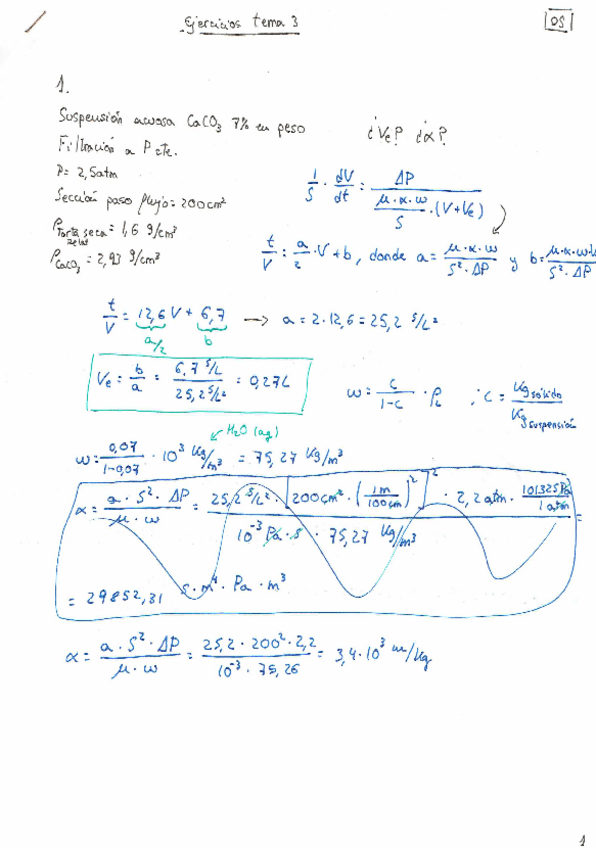 Ejercicios tema 3
05
1.
Suspensión acuosa CaCO₃ 7% en peso
¿Ve? ¿α?
Filtración a P cte.
P = 2,5 atm
Sección paso flujo = 200 cm²
1/S · dV/dt = ΔP / (μ·α·w/S · (V+Ve))
ρ torta seca = 1,6 g/cm³
ρ CaCO₃ = 2,93 g/cm³
t/V = a/2 · V + b, donde a = μ·α·w / S²·ΔP y b = μ·α·w· / S²·ΔP
t/V = 12,6 V + 6,7 → a = 2·12,6 = 25,2 s/L²
a/2 b
Ve = b/a = 6,7 s/L / 25,2 s/L² = 0,27 L
w = c/(1-c) · ρL ; c = Kg sólido / Kg suspensión
H₂O (aq)
w = 0,07/(1-0,07) · 10³ Kg/m³ = 75,27 Kg/m³
α = a·S²·ΔP / μ·w = 25,2 s/L² · [200 cm² · (1m/100cm)²]² · 2,2 atm · 101325 Pa/1 atm / 10⁻³ Pa·s · 75,27 Kg/m³ =
= 29852,31 s·m⁴·Pa·m³
α = a·S²·ΔP / μ·w = 25,2·200²·2,2 / 10⁻³·75,26 = 3,4·10³ m/Kg
1